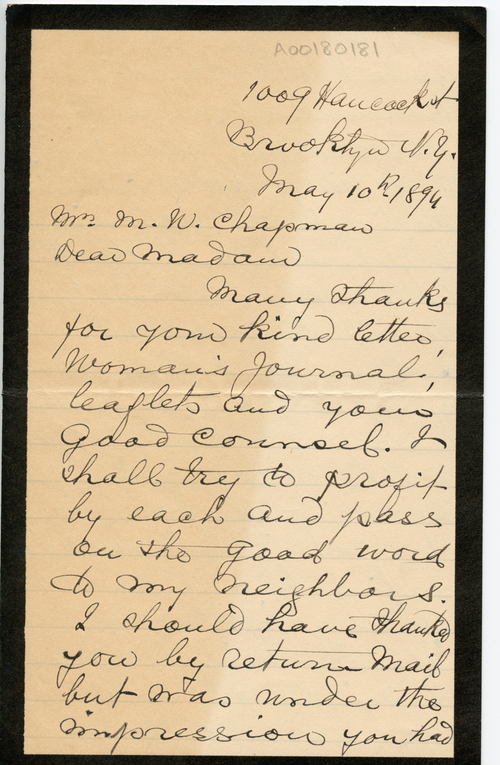 A00180181
1009 Hancock st
Brooklyn N.Y.
May 10th 1894
Mrs. M. W. Chapman
Dear Madam
Many thanks
for your kind letter,
Woman's Journal,
leaflets and your
good counsel. I
shall try to profit
by each and pass
on the good word
to my neighbors.
I should have thanked
you by return mail
but was under the
impression you had